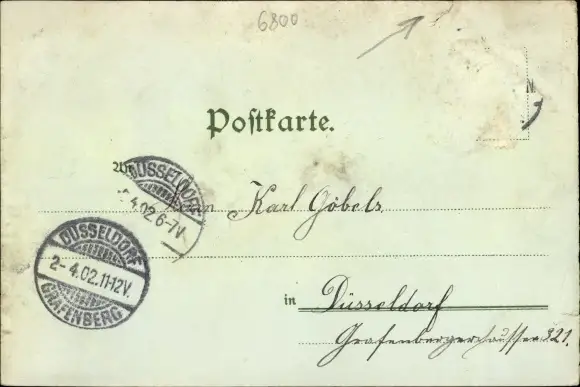 6800
N
Postkarte.
An
DÜSSELDORF
4.02.6-7V.
Herrn Karl Göbels
DÜSSELDORF
2-4.02.11-12V.
GRAFENBERG
in Düsseldorf
Grafenbergerchaussee 321.